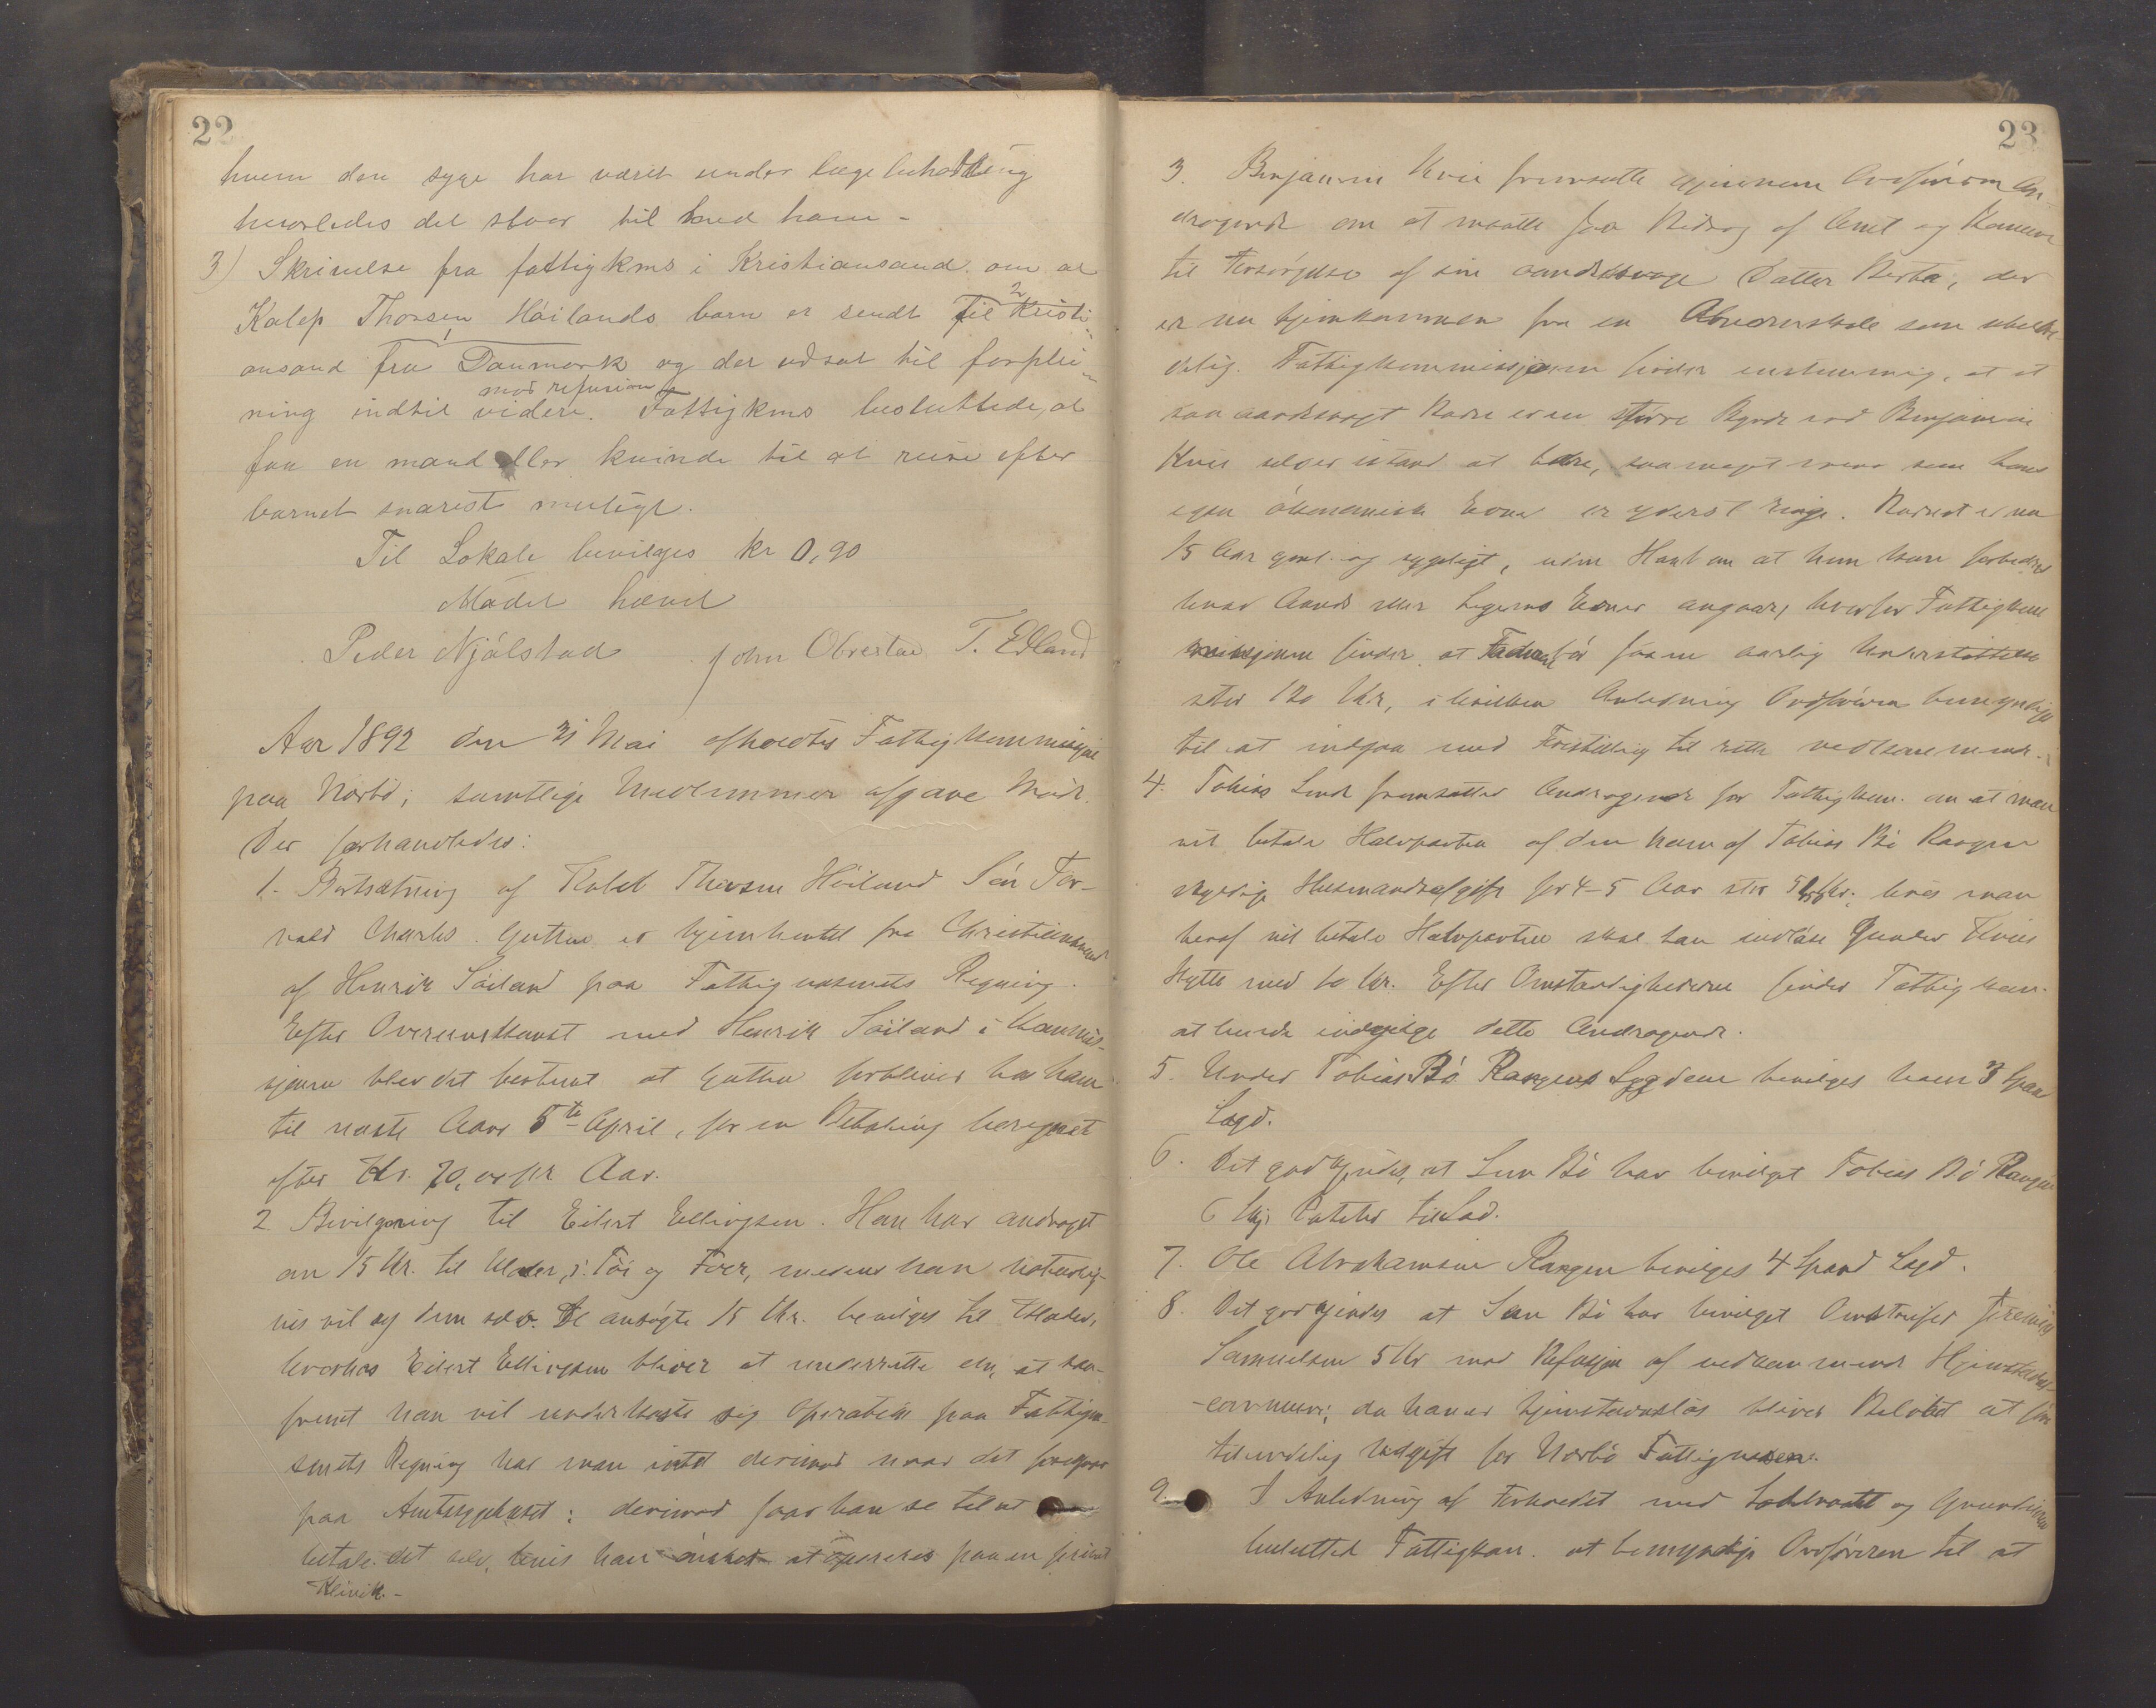 22
hvem den syge har været under lægebehandling
hvorledes det staar til med ham -
3) Skrivelse fra fattigkms i Kristiansand om at
Kalep Thorsen Høilands barn er sendt til Kristi-
ansand fra Danmark og der udsat til forplei-
ning indtil videre mod refusion. Fattigkms besluttede, at
faa en mand eller kvinde til at reise efter
barnet snarest muligt.
Til Lokale bevilges kr 0,90
Mødet hævet
Peder Njålstad John Obrestad T. Edland
Aar 1892 den 31 Mai afholdtes Fattigkommissjon
paa Nærbø; samtlige Medlemmer afgave Møde.
Der forhandledes:
1. Bortsætning af Kaleb Thorsen Høiland Søn Tor-
vald Charles. Gutten er hjemhentet fra Christiansand
af Henrik Søiland paa Fattigvæsenets Regning.
Efter Overenskomst med Henrik Søiland i Kommis-
sjonen blev det bestemt at Gutten forbliver hos ham
til næste Aars 5te April, for en Betaling beregnet
efter Kr. 70,00 pr Aar.
2 Bevilgning til Eilert Ellingsen. Han har andraget
om 15 Kr. til Klæder, i Tøi og Foer, medens han
vil sy dem selv. De ansøgte 15 Kr. bevilges til Klæder,
hvorhos Eilert Ellingsen bliver at underrette om, at saa-
fremt han vil underkaste sig Operation paa Fattigvæ-
senets Regning har man intet derimod naar det foregaar
paa Amtssygehuset; derimod faar han se til at
betale det selv, hvis han ønsker at opereres paa en privat
Klinik. -
23
3. Benjamin Kvie fremsatte gjennem Ordføreren An-
dragende om at maatte faa Bidrag af Amt og Kommune
til Forsørgelse af sin aandssvage Datter Berta, der
er nu hjemkommen fra en Abnormskole som ubelæ-
delig. Fattigkommissjonen finder enstemmig, at et
saa aandssvagt Barn er en større Byrde end Benjamin
Kvie selv er istand at bære, saa meget mere som hans
egen økonomiske Evne er yderst ringe. Barnet er nu
15 Aar gml. og sygeligt, uden Haab om at hun kan forbedres
hvad Aands eller Legems Evner angaar, hvorfor Fattigkom-
missjonen finder at Faderen bør faa en aarlig Understøttelse
stor 120 Kr, i hvilken Anledning Ordføreren bemyndiges
til at indgaa med Forestilling til rette vedkommende.
4. Tobias Lende fremsatte Andragende for Fattigkom. om at man
vil betale Halvparten af den ham af Tobias Bø Rangen
skyldige Husmandsafgift for 4-5 Aar stor Kr.; hvis man
heraf vil betale Halvparten skal han indløse Gunder Kvies
Hytte med 10 Kr. Efter Omstændighederne finder Fattigkom.
at burde indvilge dette Andragende.
5. Under Tobias Bø Rangens Sygdom bevilges ham 3 Span
Lagd.
6. Det godkjendes, at Sven Bø har bevilget Tobias Bø Rangen
6 Poteter til Sæd.
7. Ole Abrahamsen Rangen bevilges 4 Spand Lagd.
8. Det godkjendes at Sven Bø har bevilget Omstreifer Jeremias
Samuelsen 5 Kr mod Refusjon af vedkommende Hjemstavns-
-commune; da han er hjemstavnsløs bliver Beløbet at føre
til endelig Udgift for Nærbø Fattigvæsen.
9. I Anledning af Forholdet med og
besluttet Fattigkom. at bemyndige Ordføreren til at